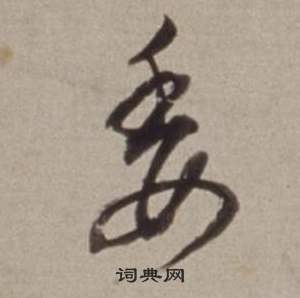 委
词典网